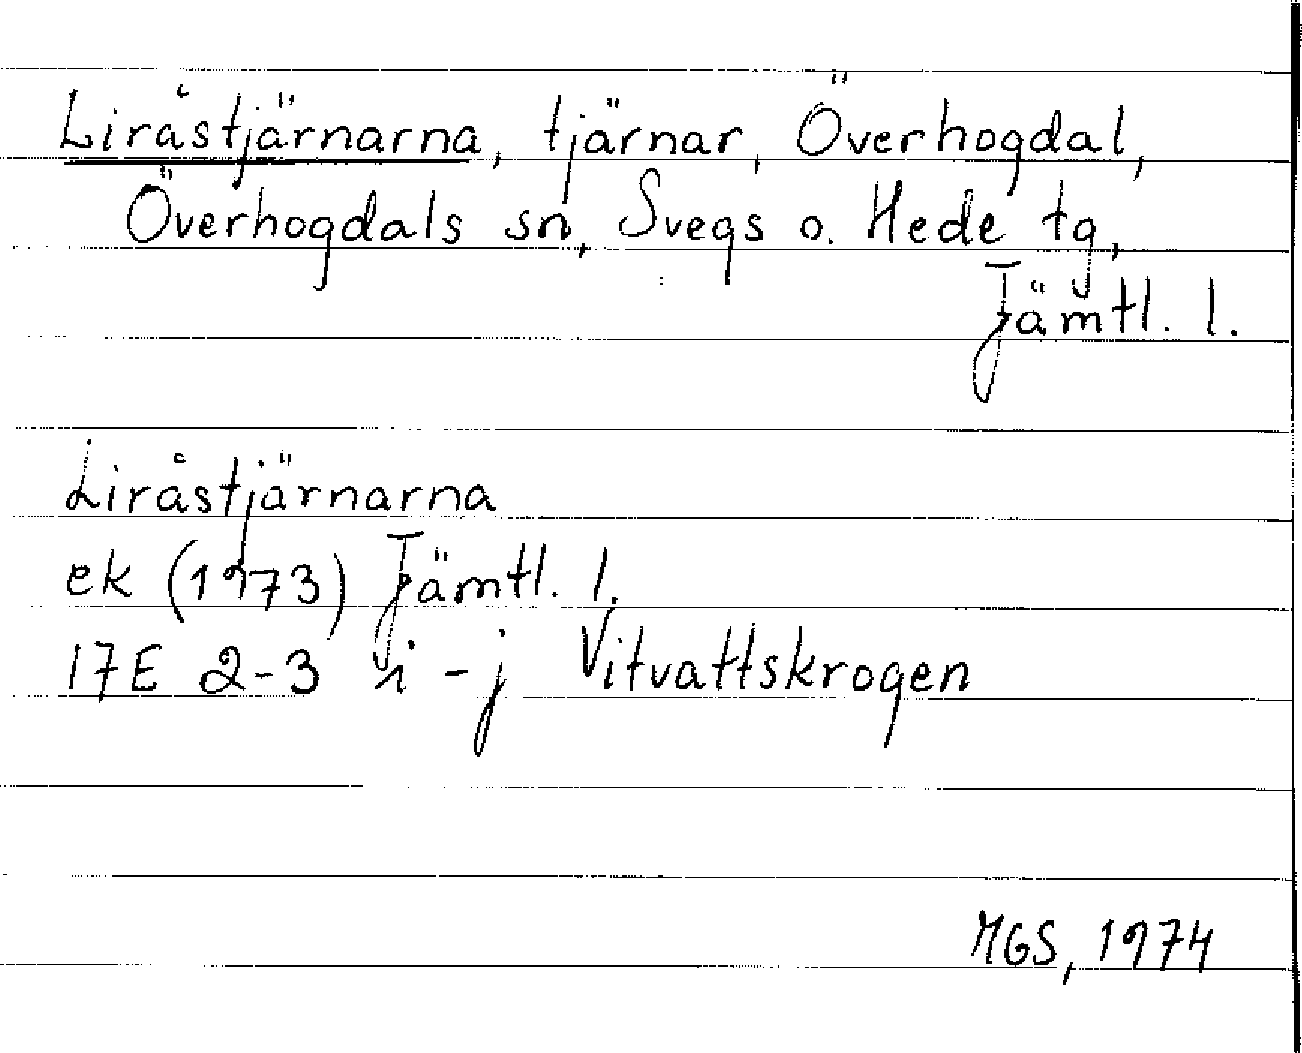 Liråstjärnarna, tjärnar, Överhogdal,
Överhogdals sn, Svegs o. Hede tg,
Jämtl. l.
Liråstjärnarna
ek (1973) Jämtl. l.
17E 2-3 i-j Vitvattskrogen
MGS, 1974